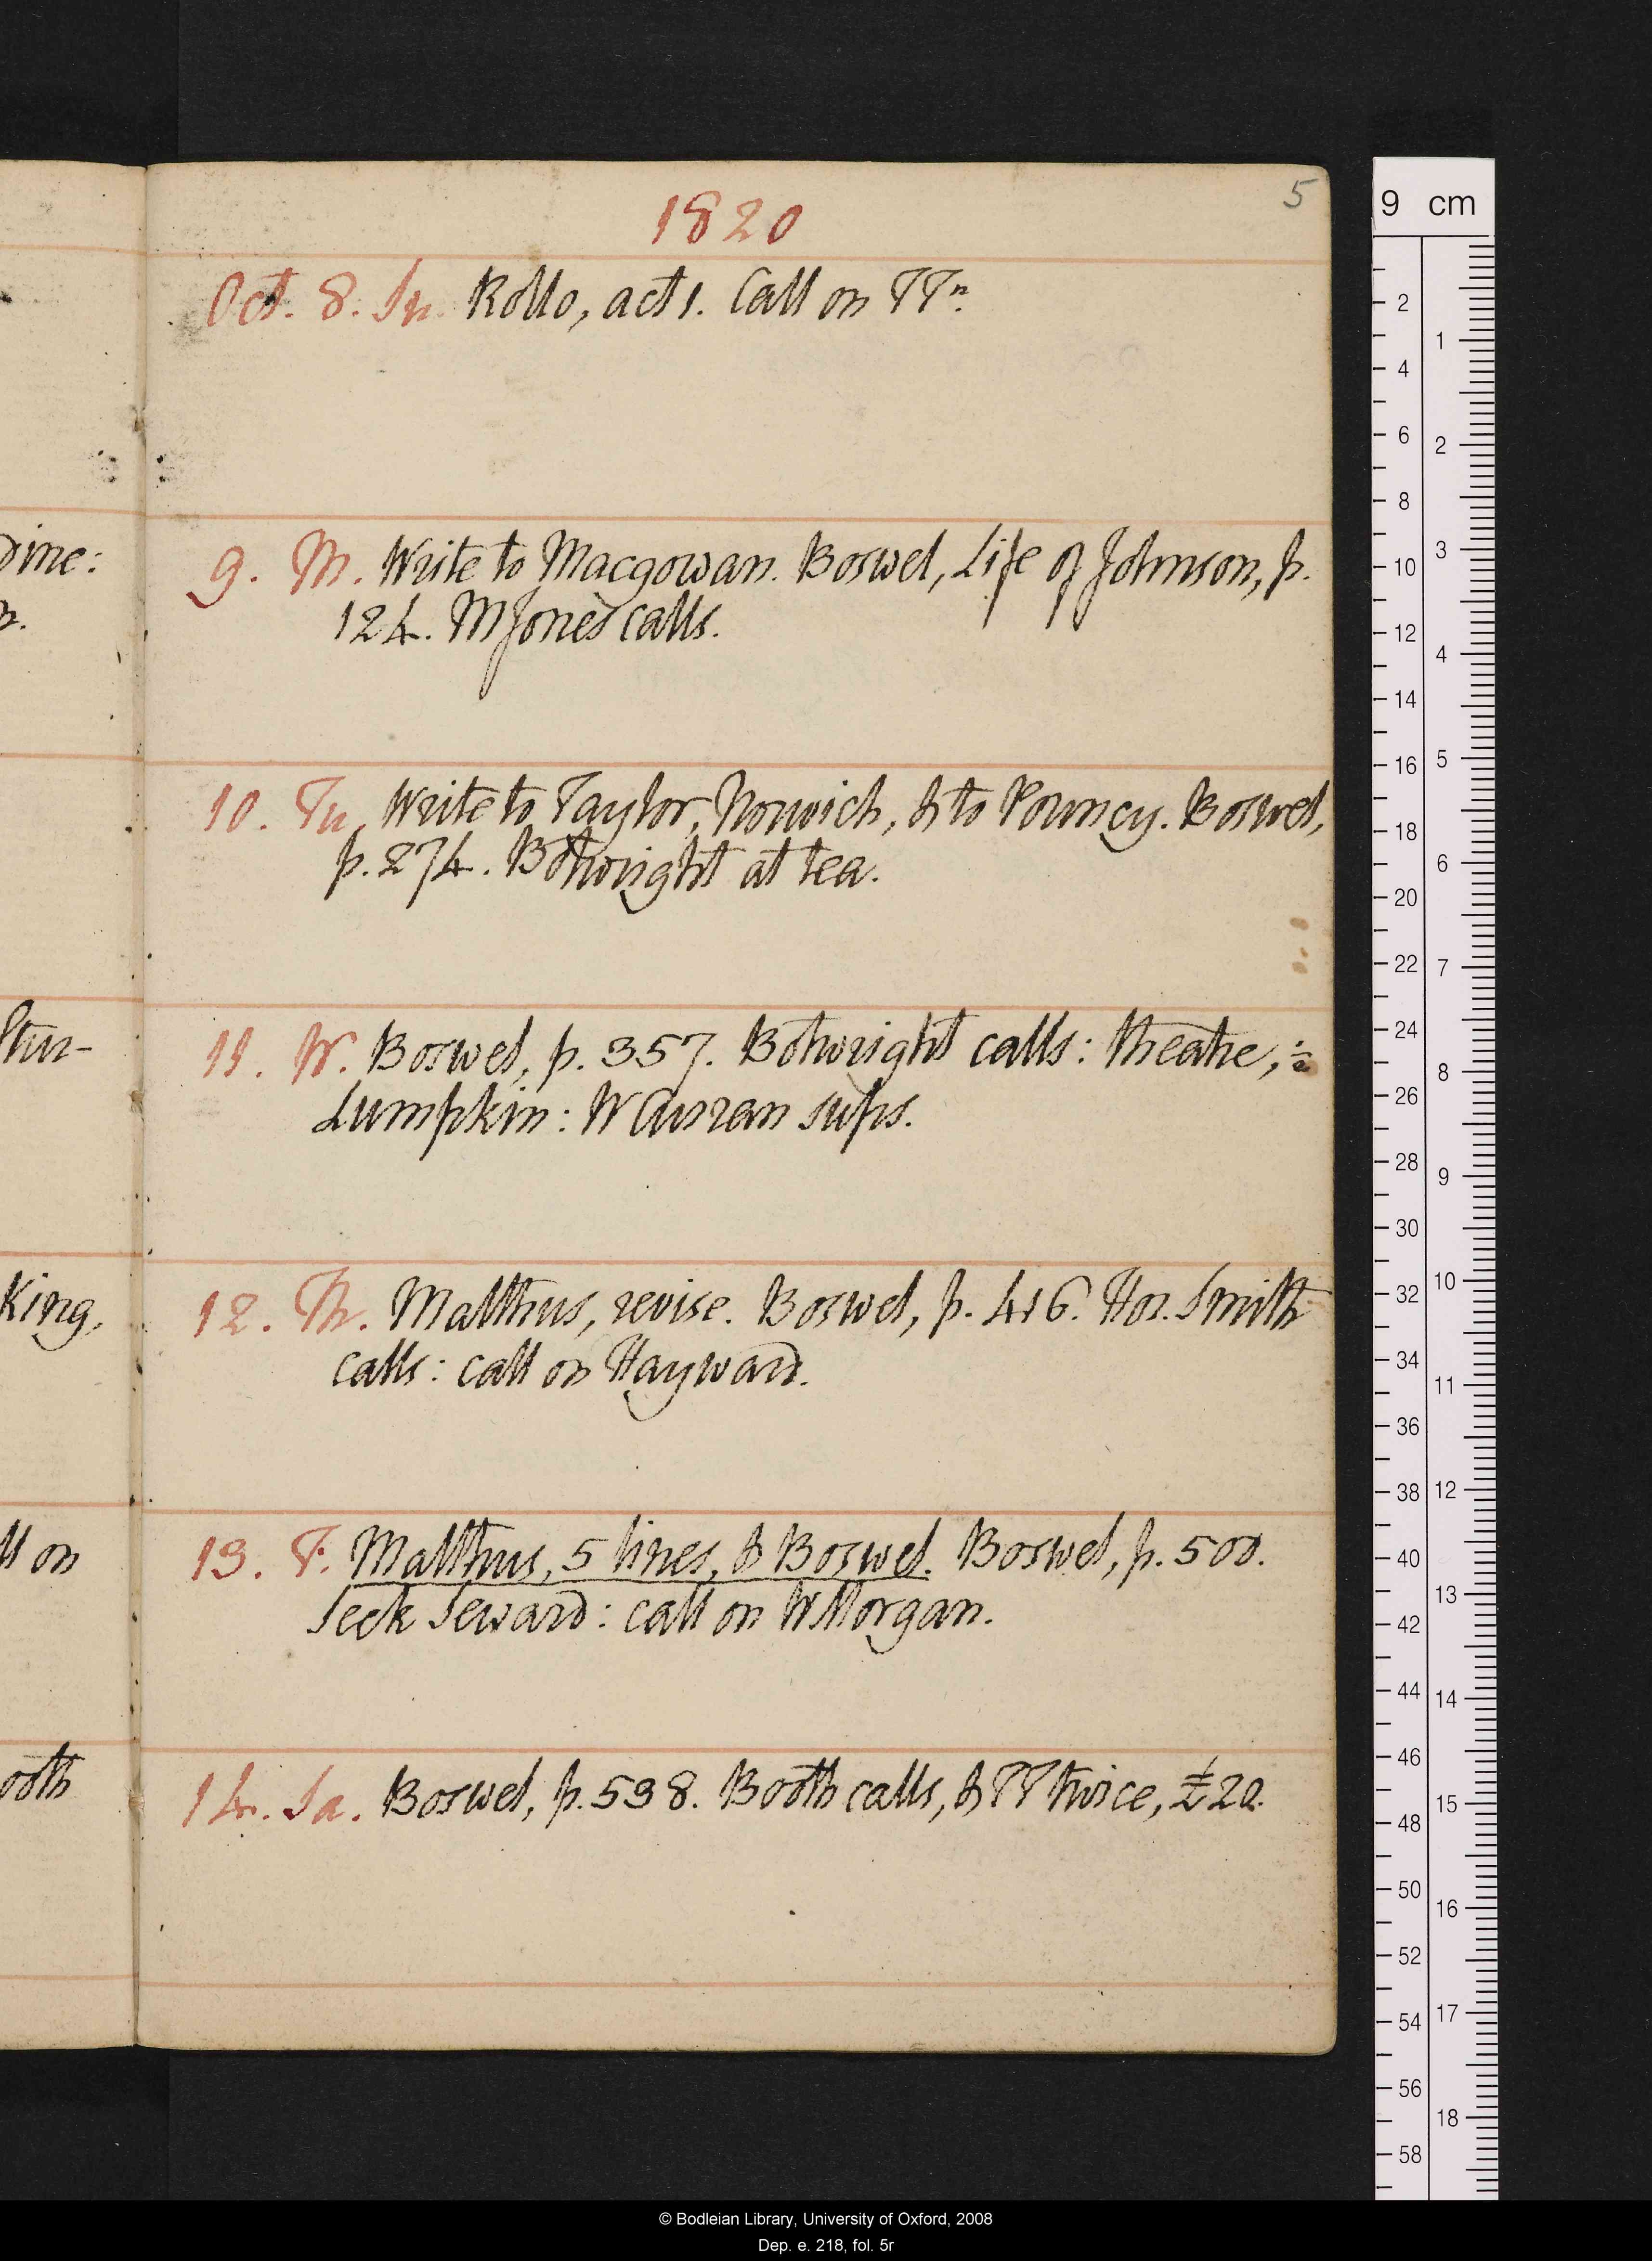 5
1820
Oct. 8. Su. Rollo, act 1. Call on TTn.
9. M. Write to Macgowan. Boswel, Life of Johnson, p.
124. MJones calls.
10. Tu. Write to Taylor, Norwich, & to Pouncy. Boswel,
p. 274. Botwright at tea.
11. W. Boswel, p. 357. Botwright calls: theatre, ½
Lumpkin: WCurran sups.
12. Th. Malthus, revise. Boswel, p. 416. Hor. Smith
calls: call on Hayward.
13. F. Malthus, 5 lines, & Boswel. Boswel, p. 500.
Seek Seward: call on WMorgan.
14. Sa. Boswel, p. 538. Booth calls, & TT twice, £20.
dine:
n.
Stur-
King,
ll on
ooth
9 cm
2
4
6
8
10
12
14
16
18
20
22
24
26
28
30
32
34
36
38
40
42
44
46
48
50
52
54
56
58
1
2
3
4
5
6
7
8
9
10
11
12
13
14
15
16
17
18
© Bodleian Library, University of Oxford, 2008
Dep. e. 218, fol. 5r